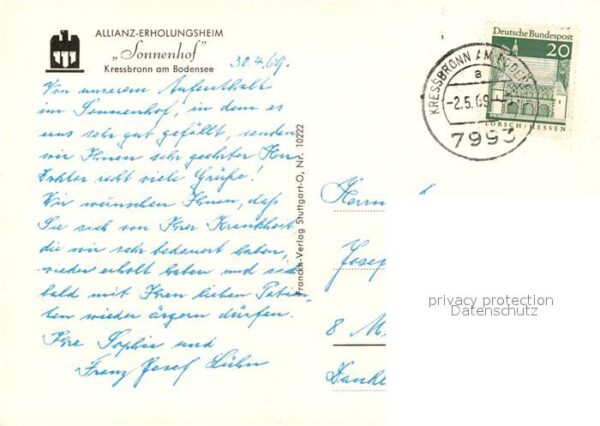 ALLIANZ-ERHOLUNGSHEIM
„Sonnenhof"
Kressbronn am Bodensee
30.4.69.
Von unserem Aufenthalt
im Sonnenhof, in dem es
uns sehr gut gefällt, senden
wir Ihnen sehr geehrter Herr
Doktor recht viele Grüße!
Wir wünschen Ihnen, daß
Sie sich von Ihrer Krankheit
die wir sehr bedauert haben,
wieder erholt haben und sich
bald mit Ihren lieben Patien-
ten wieder ärgern dürfen.
Ihre Sophie und
Franz Josef
Franckh-Verlag Stuttgart-O, Nr. 10222
Deutsche Bundespost
20
LORSCH/HESSEN
KRESSBRONN AM BODEN
a
-2.5.69-
7993
Herrn
Josep
8 M
privacy protection
Datenschutz